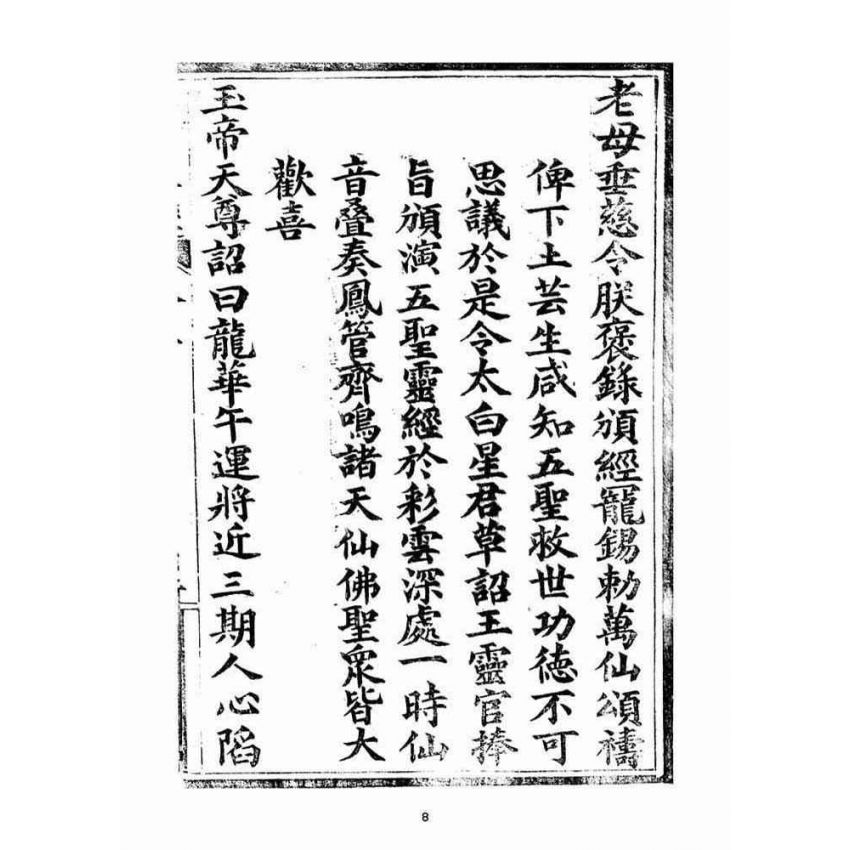 老母垂慈令朕褒錄頒經寵錫勅萬仙頌禱
俾下土芸生咸知五聖救世功德不可
思議於是令太白星君草詔王靈官捧
旨頒演五聖靈經於彩雲深處一時仙
音疊奏鳳管齊鳴諸天仙佛聖眾皆大
歡喜
玉帝天尊詔曰龍華午運將近三期人心陷
8